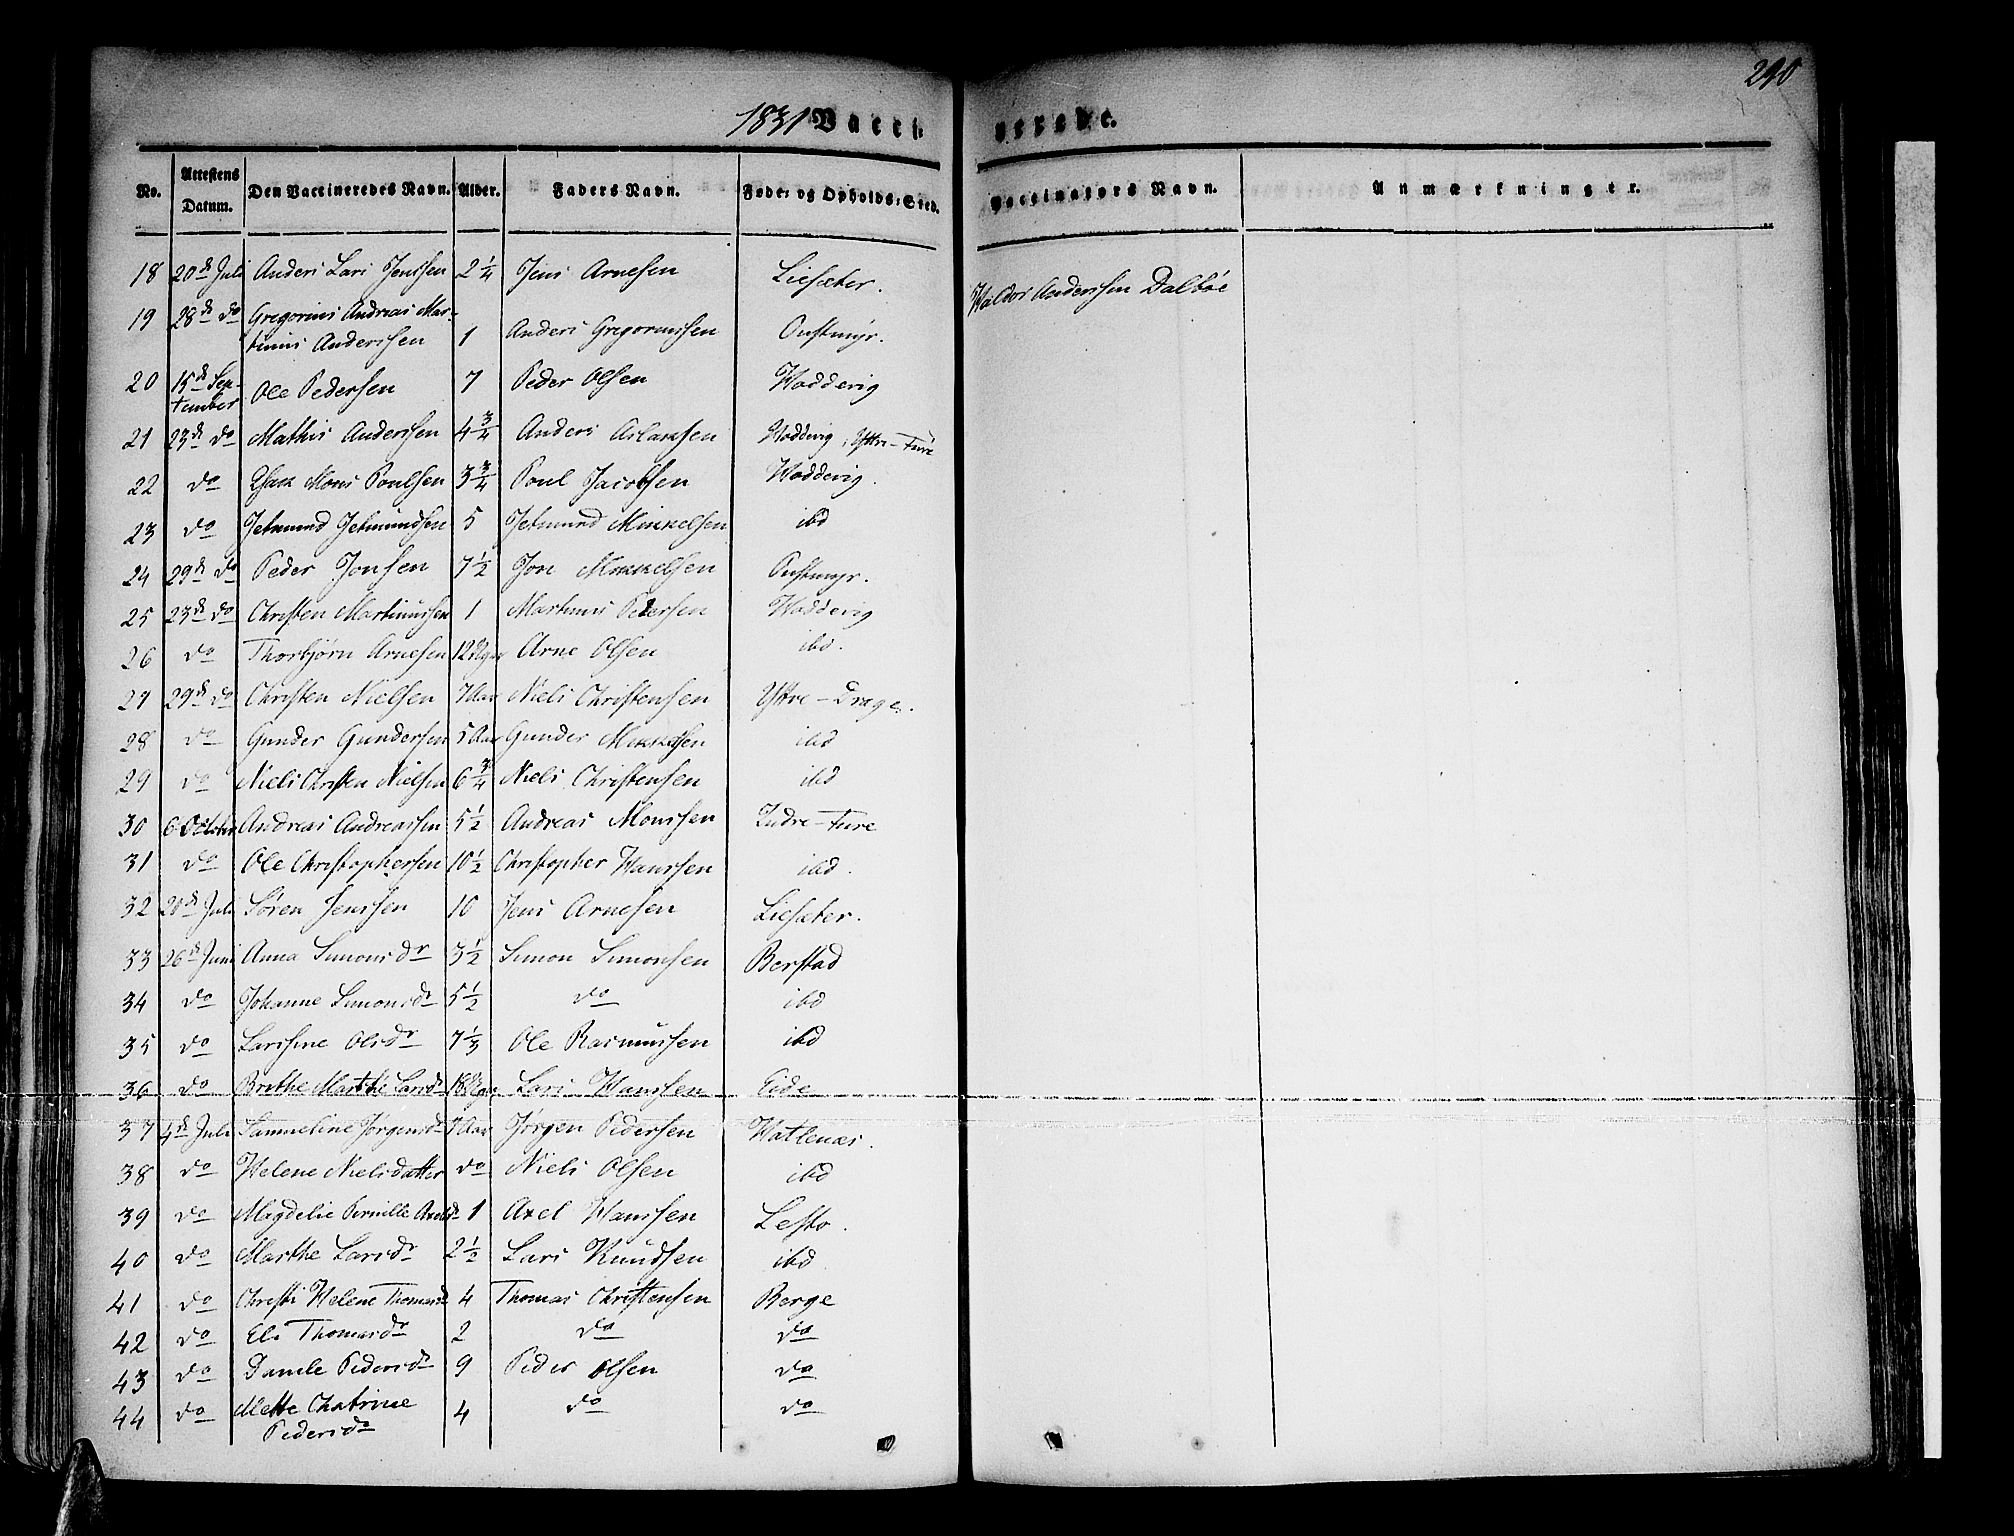 290
1831 Vacci nerede.
No. Attestens Datum. Den Vaccineredes Navn. Alder. Faders Navn. Føde- og Opholds-Sted. Vaccinatørs Navn. Anmærkninger.
18 20de Juli Anders Lars Jenssen 2 1/4 Jens Arnesen Liesæter. Haldor Anderssen Dalbøe
19 28de do Gregorius Andreas Mar-
tinus Anderssen 1 Anders Gregoriussen Oustmyr.
20 15de Sep-
tember Ole Pedersen 7 Peder Olsen Hoddevig
21 23de do Mathis Anderssen 4 3/4 Anders Aslaksen Hoddevig, Yttre-Fure
22 do Isak Mons Poulsen 3 3/4 Poul Jacobsen Hoddevig.
23 do Jetmund Jetmundsen 5 Jetmund Mikkelsen ibd
24 29de do Peder Jonsen 7 1/2 Jon Mikkelsen Oustmyr.
25 23de do Christen Martinussen 1 Martinus Petersen Hoddevig
26 do Thorbjørn Arnesen 12 Uger Arne Olsen ibd.
27 29de do Christen Nielsen 7 Aar Niels Christensen Yttre-Drage.
28 do Gunder Gundersen 5 Aar Gunder Mikkelsen ibd
29 do Niels Christen Nielsen 6 3/4 Niels Christensen ibd
30 6 October Andreas Andreassen 5 1/2 Andreas Monssen Indre-Fure
31 do Ole Christophersen 10 1/2 Christopher Hanssen ibd.
32 20de Juli Søren Jenssen 10 Jens Arnesen Liesæter.
33 26de Juni Anna Simonsdr 3 1/2 Simon Simonsen Berstad
34 do Johanne Simonsdr 5 1/2 do ibd
35 do Larssine Olsdr 7 1/3 Ole Rasmussen ibd
36 do Brithe Marthe Larsdr 18 Uger Lars Hanssen Eide
37 4de Juli Sammeline Jørgensdr 7 Aar Jørgen Pedersen Hatlenæs.
38 do Helene Nielsdatter do Niels Olsen ibd
39 do Magdelie Pernille Axelsdr 1 Axel Hanssen Lesto.
40 do Marthe Larsdr 2 1/2 Lars Knudsen ibd
41 do Christi Helene Thomasd 4 Thomas Christensen Berge
42 do Eli Thomasdr 2 do do
43 do Damle Pedersdr 9 Peder Olsen do
44 do Mette Chatrine
Pedersdr 4 do do